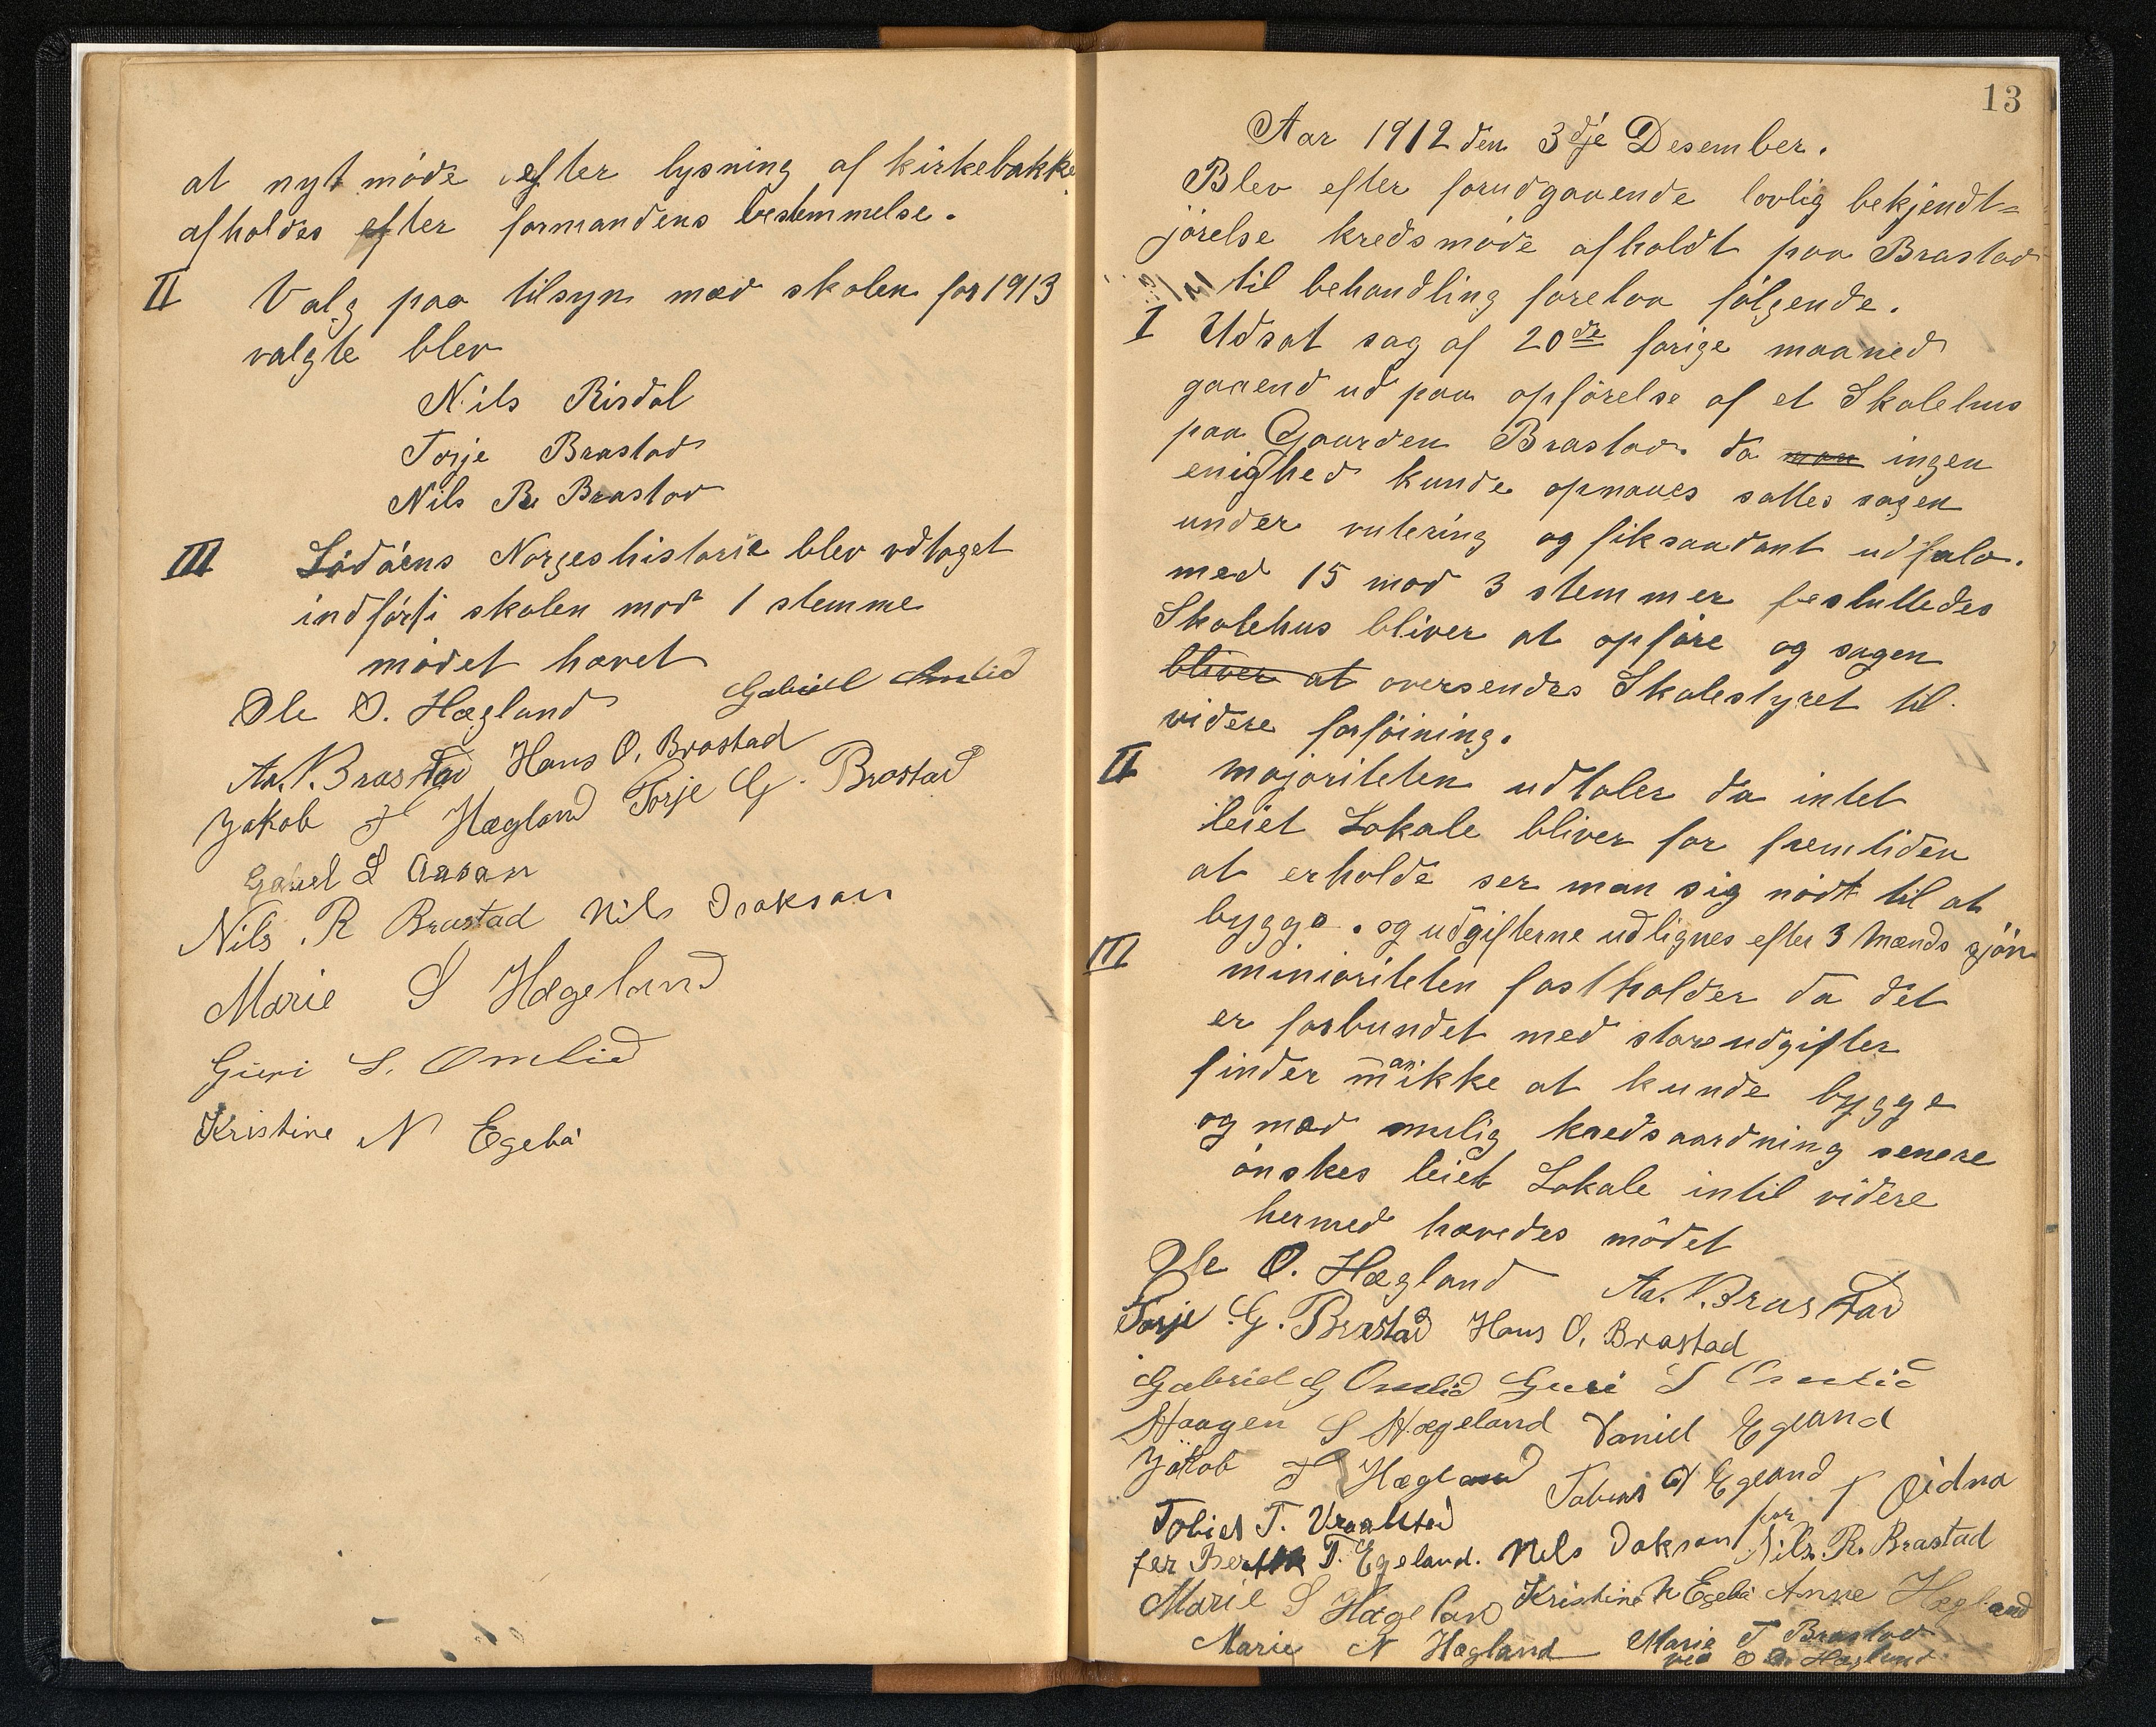 at nyt möde efter lysning af kirkebakke
afholdes efter formandens bestemmelse.
II Valg paa tilsyn med skolen for 1913
valgte blev
Nils Risdal
Torje Brastad
Nils R. Brastad
III Lödöens Norgeshistorie blev vdtaget
indfört i skolen mod 1 stemme
mödet hævet
Ole O. Hægland Gabriel Omlid
Aa. N. Brastad Hans O. Brastad
Jakob T Hægland Torje G. Brastad
Gabriel L Aasan
Nils. R Brastad Nils Isakson
Marie S Hægeland
Guri S. Omlid
Kristine N Egebö
13
Aar 1912 den 3dje Desember.
Blev efter forudgaaende lovlig bekjendt=
jörelse kredsmöde afholdt paa Brastad
til behandling forelaa fölgende.
I Udsat sag af 20de forige maaned
gaaend ud paa opförelse af et Skolehus
paa Gaarden Brastad. da man ingen
enighed kunde opnaaes sattes sagen
under votering og fik saadant udfald.
med 15 mod 3 stemmer besluttedes
Skolehus bliver at opföre og sagen
bliver at oversendes Skolestyret til
videre forföining.
II majoriteten udtaler da intet
leiet Lokale bliver for fremtiden
at erholde ser man sig nödt til at
bygge. og udgifterne udlignes efter 3 Mænds sjön
III minioriteten fastholder da det
er forbundet med store udgifter
finder man ikke at kunde bygge
og med mulig kredsaardning senere
önskes leiet Lokale intil videre
hermed hævedes mödet
Ole O. Hægland Aa. N. Brastad
Torje G. Brastad Hans O. Brastad
Gabriel G Omlid Guri S Omlid
Haagen S Hægeland Daniel Egeland
Jakob T Hægland Tobias Egeland
Tobias T. Vraalstad for T Eidna
for Berthe T. Egeland. Nils Isakson Nils. R. Brastad
Marie S Hægeland Kristine N Egebö Anne Hægland
Marie N Hægland Marie T Brastad
ved O O Hægland